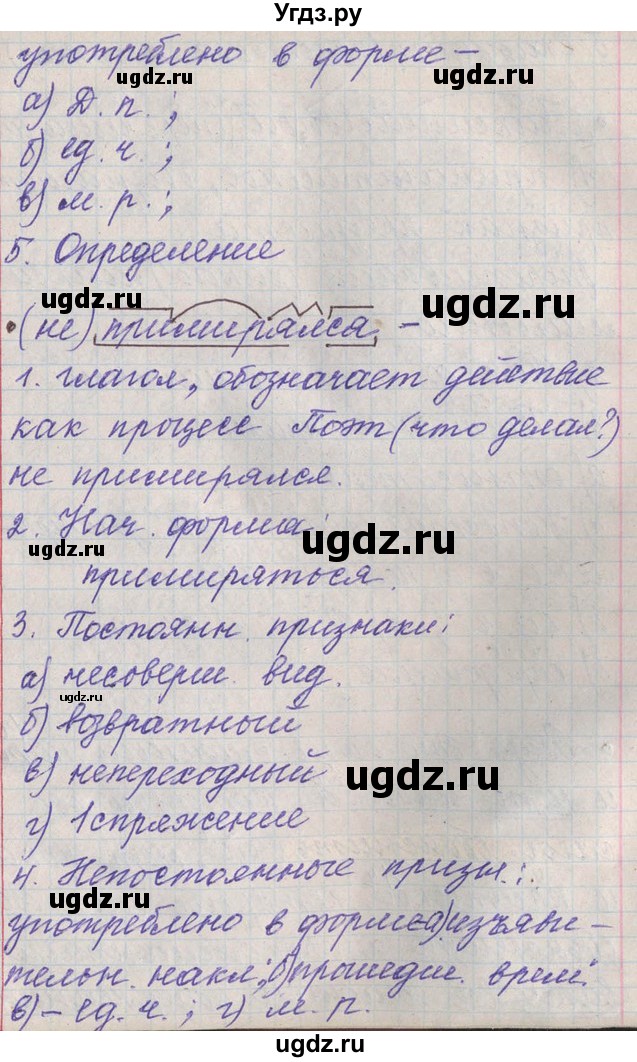 Угдз.ру
употреблено в форме –
ugdz.ru ugdz.ru
а) Д. п. ;
б) ед. ч. ;
в) м. р. ;
5. Определение
ugdz.ru ugdz.ru
•(не) примирялся –
1. глагол, обозначает действие
как процесс Поэт (что делал?)
не примирялся.
2. Нач. форма:
ugdz.ru ugdz.ru
примиряться.
3. Постоянн. признаки:
а) несоверш. вид.
ugdz.ru
б) возвратный
в) непереходный
ugdz.ru
г) 1 спряжение
4. Непостоянные призн.:
ugdz.ru
употреблено в форме а) изъяви –
тельн. накл.; б) прошедш. врем.
в) – ед. ч. ; г) м. р.
ugdz.ru